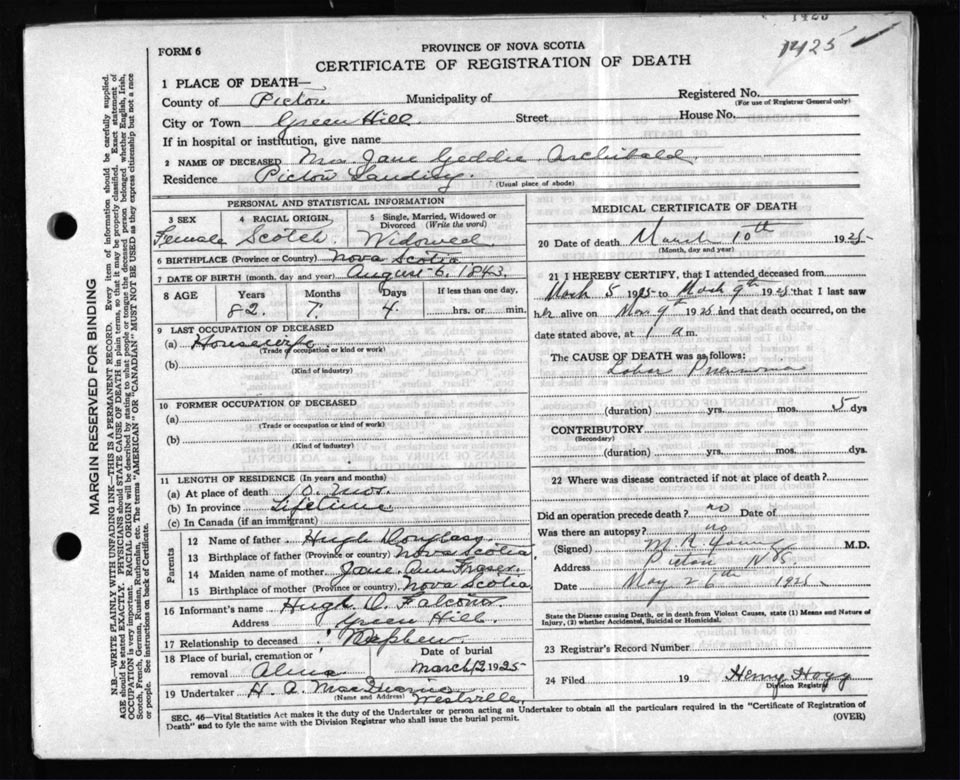 1425
1425
FORM 6
PROVINCE OF NOVA SCOTIA
CERTIFICATE OF REGISTRATION OF DEATH
1 PLACE OF DEATH—
County of Pictou Municipality of Registered No.
(For use of Registrar General only)
City or Town Green Hill Street House No.
If in hospital or institution, give name
2 NAME OF DECEASED Mrs Jane Geddie Archibald
Residence Pictou Landing
(Usual place of abode)
PERSONAL AND STATISTICAL INFORMATION
3 SEX 4 RACIAL ORIGIN, 5 Single, Married, Widowed or Divorced (Write the word)
Female Scotch Widowed
6 BIRTHPLACE (Province or Country) Nova Scotia
7 DATE OF BIRTH (month, day and year) August 6, 1843.
8 AGE Years Months Days If less than one day,
82. 7. 4. hrs. or min.
9 LAST OCCUPATION OF DECEASED
(a) Housewife
(Trade or occupation or kind or work)
(b)
(Kind of industry)
10 FORMER OCCUPATION OF DECEASED
(a)
(Trade or occupation or kind or work)
(b)
(Kind of industry)
11 LENGTH OF RESIDENCE (In years and months)
(a) At place of death mos.
(b) In province Lifetime
(c) In Canada (if an immigrant)
Parents
12 Name of father Hugh Douglass
13 Birthplace of father (Province or country) Nova Scotia
14 Maiden name of mother Jane Ann Fraser.
15 Birthplace of mother (Province or country) Nova Scotia
16 Informant's name Hugh D. Falconer
Address Green Hill
17 Relationship to deceased Nephew
18 Place of burial, cremation or removal Alma Date of burial March 12 1925
19 Undertaker H. A. Westville.
(Name and Address)
MEDICAL CERTIFICATE OF DEATH
20 Date of death March 10th 1925
(Month, day and year)
21 I HEREBY CERTIFY, that I attended deceased from
March 5 1925 to March 9th 1925 that I last saw
her alive on Mar 9th 1925 and that death occurred, on
date stated above, at 1 a m.
The CAUSE OF DEATH was as follows:
Lobar Pneumonia
(duration) yrs. mos. 5 dys
CONTRIBUTORY
(Secondary)
(duration) yrs. mos. dys.
22 Where was disease contracted if not at place of death?
Did an operation precede death? no Date of
Was there an autopsy? no
(Signed) M R Young M.D.
Address Pictou N S.
Date May 26th 1925
State the Disease causing Death, or in death from Violent Causes, state (1) Means and Nature of
Injury, (2) whether Accidental, Suicidal or Homicidal.
23 Registrar's Record Number
24 Filed 19 Henry Hogg
Division Registrar
SEC. 46—Vital Statistics Act makes it the duty of the Undertaker or person acting as Undertaker to obtain all the particulars required in the "Certificate of Registration of
Death" and to fyle the same with the Division Registrar who shall issue the burial permit. (OVER)
MARGIN RESERVED FOR BINDING
N.B.—WRITE PLAINLY WITH UNFADING INK—THIS IS A PERMANENT RECORD. Every item of information should be carefully supplied.
AGE should be stated EXACTLY. PHYSICIANS should STATE CAUSE OF DEATH in plain terms, so that it may be properly classified. Exact statement of
OCCUPATION is very important. RACIAL ORIGIN will be described by stating to what people or tongue the deceased person belonged whether English, Irish,
Scotch, French, German, Russian, Ruthenian, etc. The terms "AMERICAN" OR "CANADIAN" MUST NOT BE USED as they express citizenship but not a race
or people. See instructions on back of Certificate.